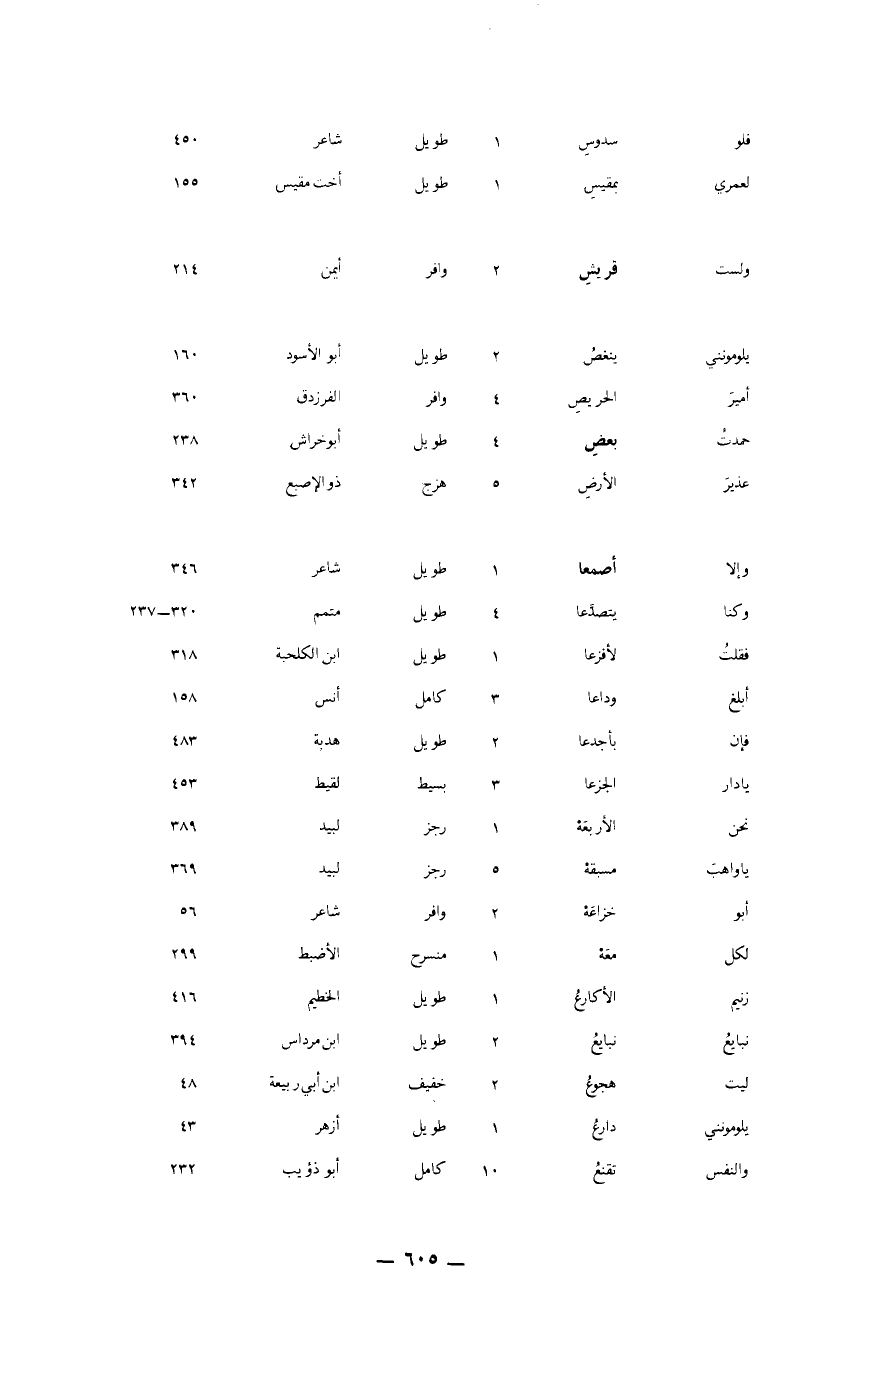 فلو سدوسِ ١ طويل شاعر ٤٥٠
لعمري بمقيسِ ١ طويل أخت مقيس ١٥٥
ولست قريشِ ٢ وافر أيمن ٢١٤
يلومونني ينغصُ ٢ طويل أبو الأسود ١٦٠
أميرَ الحريصِ ٤ وافر الفرزدق ٣٦٠
حمدتُ بعضِ ٤ طويل أبوخراش ٢٣٨
عذيرَ الأرضِ ٥ هزج ذو الإصبع ٣٤٢
وإلا أصمعا ١ طويل شاعر ٣٤٦
وكنا يتصدَّعا ٤ طويل متمم ٣٢٠—٢٣٧
فقلتُ لأفزعا ١ طويل ابن الكلحبة ٣١٨
أبلغ وداعا ٣ كامل أنس ١٥٨
فإن بأجدعا ٢ طويل هدبة ٤٨٣
يادار الجزعا ٣ بسيط لقيط ٤٥٣
نحن الأربعَهْ ١ رجز لبيد ٣٨٩
ياواهبَ مسبقهْ ٥ رجز لبيد ٣٦٩
أبو خزاعَهْ ٢ وافر شاعر ٥٦
لكل معَهْ ١ منسرح الأضبط ٢٩٩
زنيم الأكارعُ ١ طويل الخطيم ٤١٦
نبايعُ نبايعُ ٢ طويل ابن مرداس ٣٩٤
ليت هجوعُ ٢ خفيف ابن أبي ربيعة ٤٨
يلومونني دارعُ ١ طويل أزهر ٤٣
والنفس تقنعُ ١٠ كامل أبو ذؤيب ٢٣٢
— ٦٠٥ —